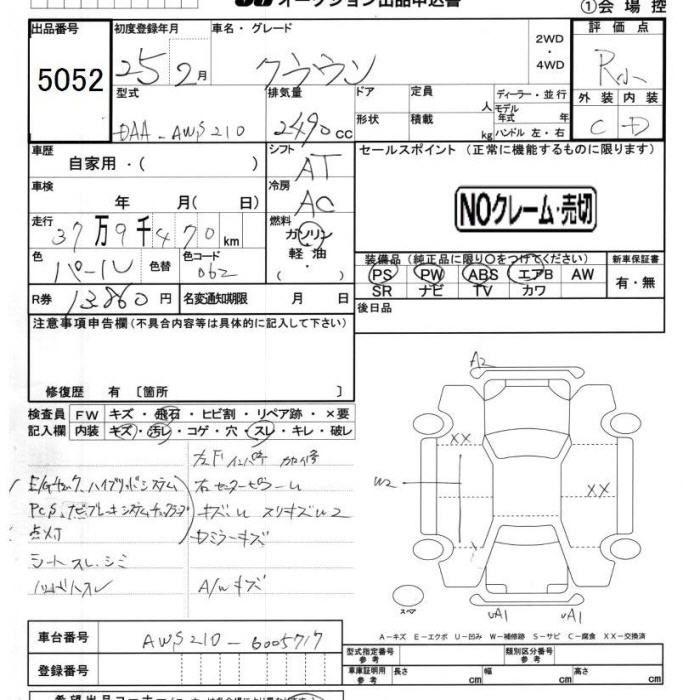 オークション出品申込書
①会場控
出品番号 初度登録年月 車名・グレード 評価点
5052 25 2月 クラウン 2WD・4WD R小
型式 排気量 ドア 定員 人 ディーラー・並行 外装 内装
DAA-AWS210 2490cc 形状 積載 kg モデル年式 年 ハンドル 左・右 C D
車歴 シフト セールスポイント (正常に機能するものに限ります)
自家用・( ) AT
車検 冷房
年 月( 日) AC NOクレーム・売切
走行 燃料
37万9千470km ガソリン
色 色替 色コード 軽油 装備品 (純正品に限り○をつけてください) 新車保証書
パール 062 ・( ) PS PW ABS エアB AW 有・無
R券 13,860円 名変通知期限 月 日 SR ナビ TV カワ
注意事項申告欄(不具合内容等は具体的に記入して下さい) 後日品
修復歴 有 〔箇所 〕
検査員 FW キズ・飛石・ヒビ割・リペア跡・×要
記入欄 内装 キズ・汚レ・コゲ・穴・スレ・キレ・破レ
A2
XX
W2
XX
E/Gチェック、ハイブリッドシステム
PCS、ナビブレーキシステムチェックランプ キズ・U スリキズU2
点灯 ドミラーキズ
シートスレ・シミ
ハンドルスレ A/Wキズ
スペア
UA1 UA1
A-キズ E-エクボ U-凹み W-補修跡 S-サビ C-腐食 XX-交換済
車台番号 AWS210-6005717
型式指定番号 参考 類別区分番号 参考
登録番号
車庫証明用 参考 長さ cm 幅 cm 高さ cm